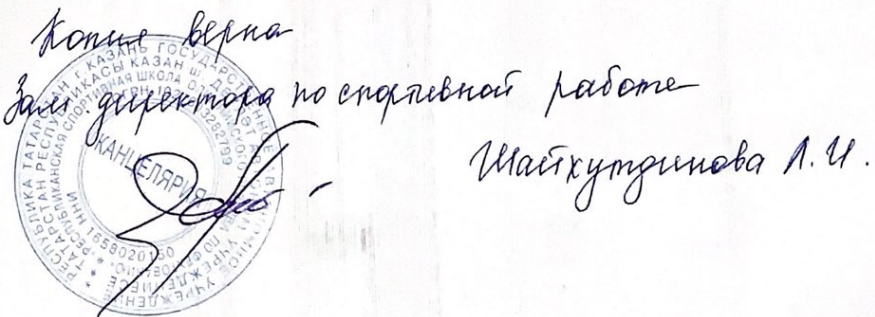 Копия верна
Зам. директора по спортивной работе
Шайхутдинова Л. И.
РЕСПУБЛИКА ТАТАРСТАН Г. КАЗАНЬ ГОСУДАРСТВЕННОЕ АВТОНОМНОЕ УЧРЕЖДЕНИЕ
ТАТАРСТАН РЕСПУБЛИКАСЫ КАЗАН
СПОРТИВНАЯ ШКОЛА
КАНЦЕЛЯРИЯ
ИНН 1658020150